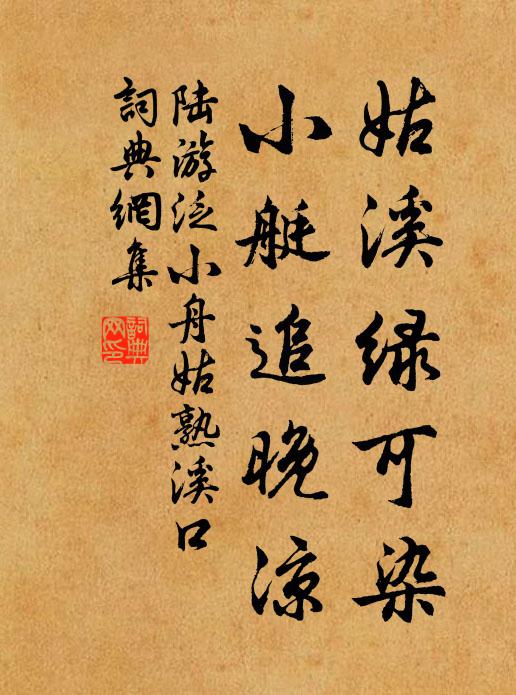 姑溪绿可染
小艇追晚凉
陆游泛小舟姑熟溪口
詞典網集
詞典網印